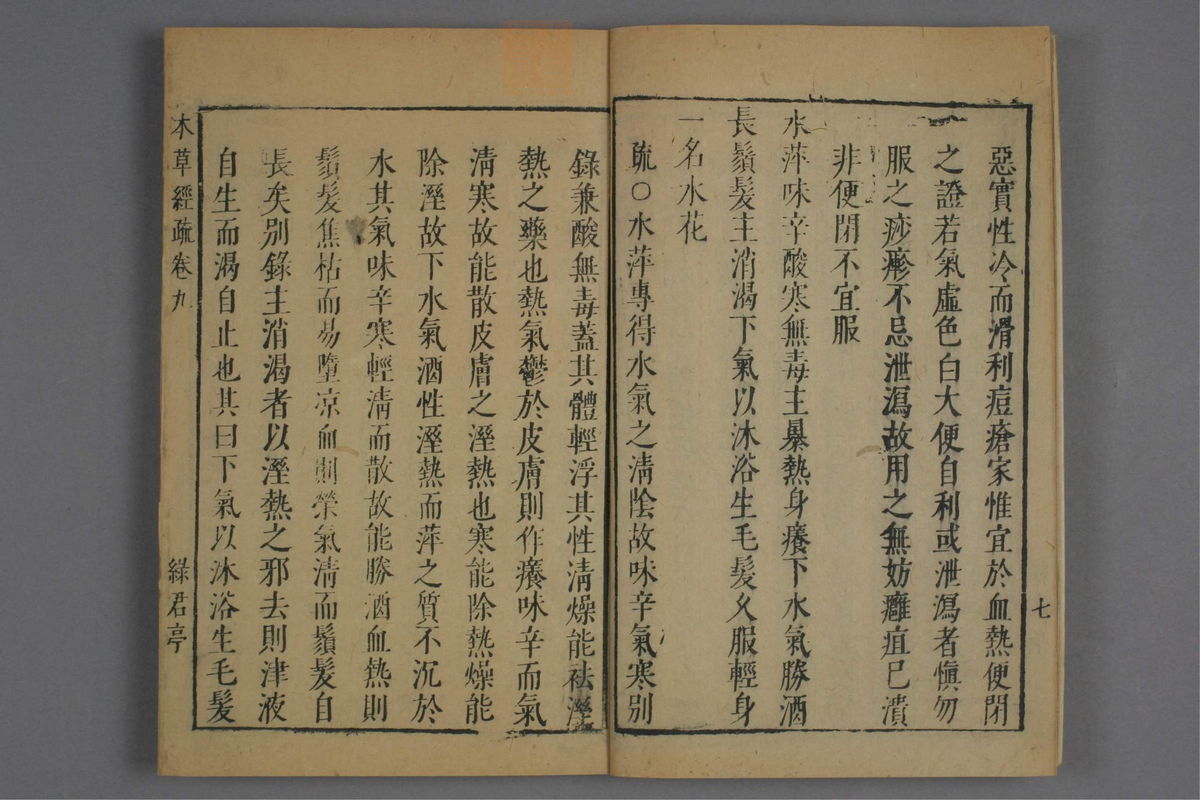 七
惡實性冷而滑利痘瘡家惟宜於血熱便閉
之證若氣虛色白大便自利或泄瀉者愼勿
服之痧瘮不忌泄瀉故用之無妨癰疽已潰
非便閉不宜服
水萍味辛酸寒無毒主暴熱身癢下水氣勝酒
長鬚髮主消渴下氣以沐浴生毛髮久服輕身
一名水花
疏○水萍專得水氣之淸陰故味辛氣寒別
錄兼酸無毒蓋其體輕浮其性淸燥能祛溼
熱之藥也熱氣鬱於皮膚則作癢味辛而氣
淸寒故能散皮膚之溼熱也寒能除熱燥能
除溼故下水氣酒性溼熱而萍之質不沉於
水其氣味辛寒輕淸而散故能勝酒血熱則
鬚髮焦枯而易墮凉血則榮氣淸而鬚髮自
長矣別錄主消渴者以溼熱之邪去則津液
自生而渴自止也其曰下氣以沐浴生毛髮
本草經疏卷九
綠君亭